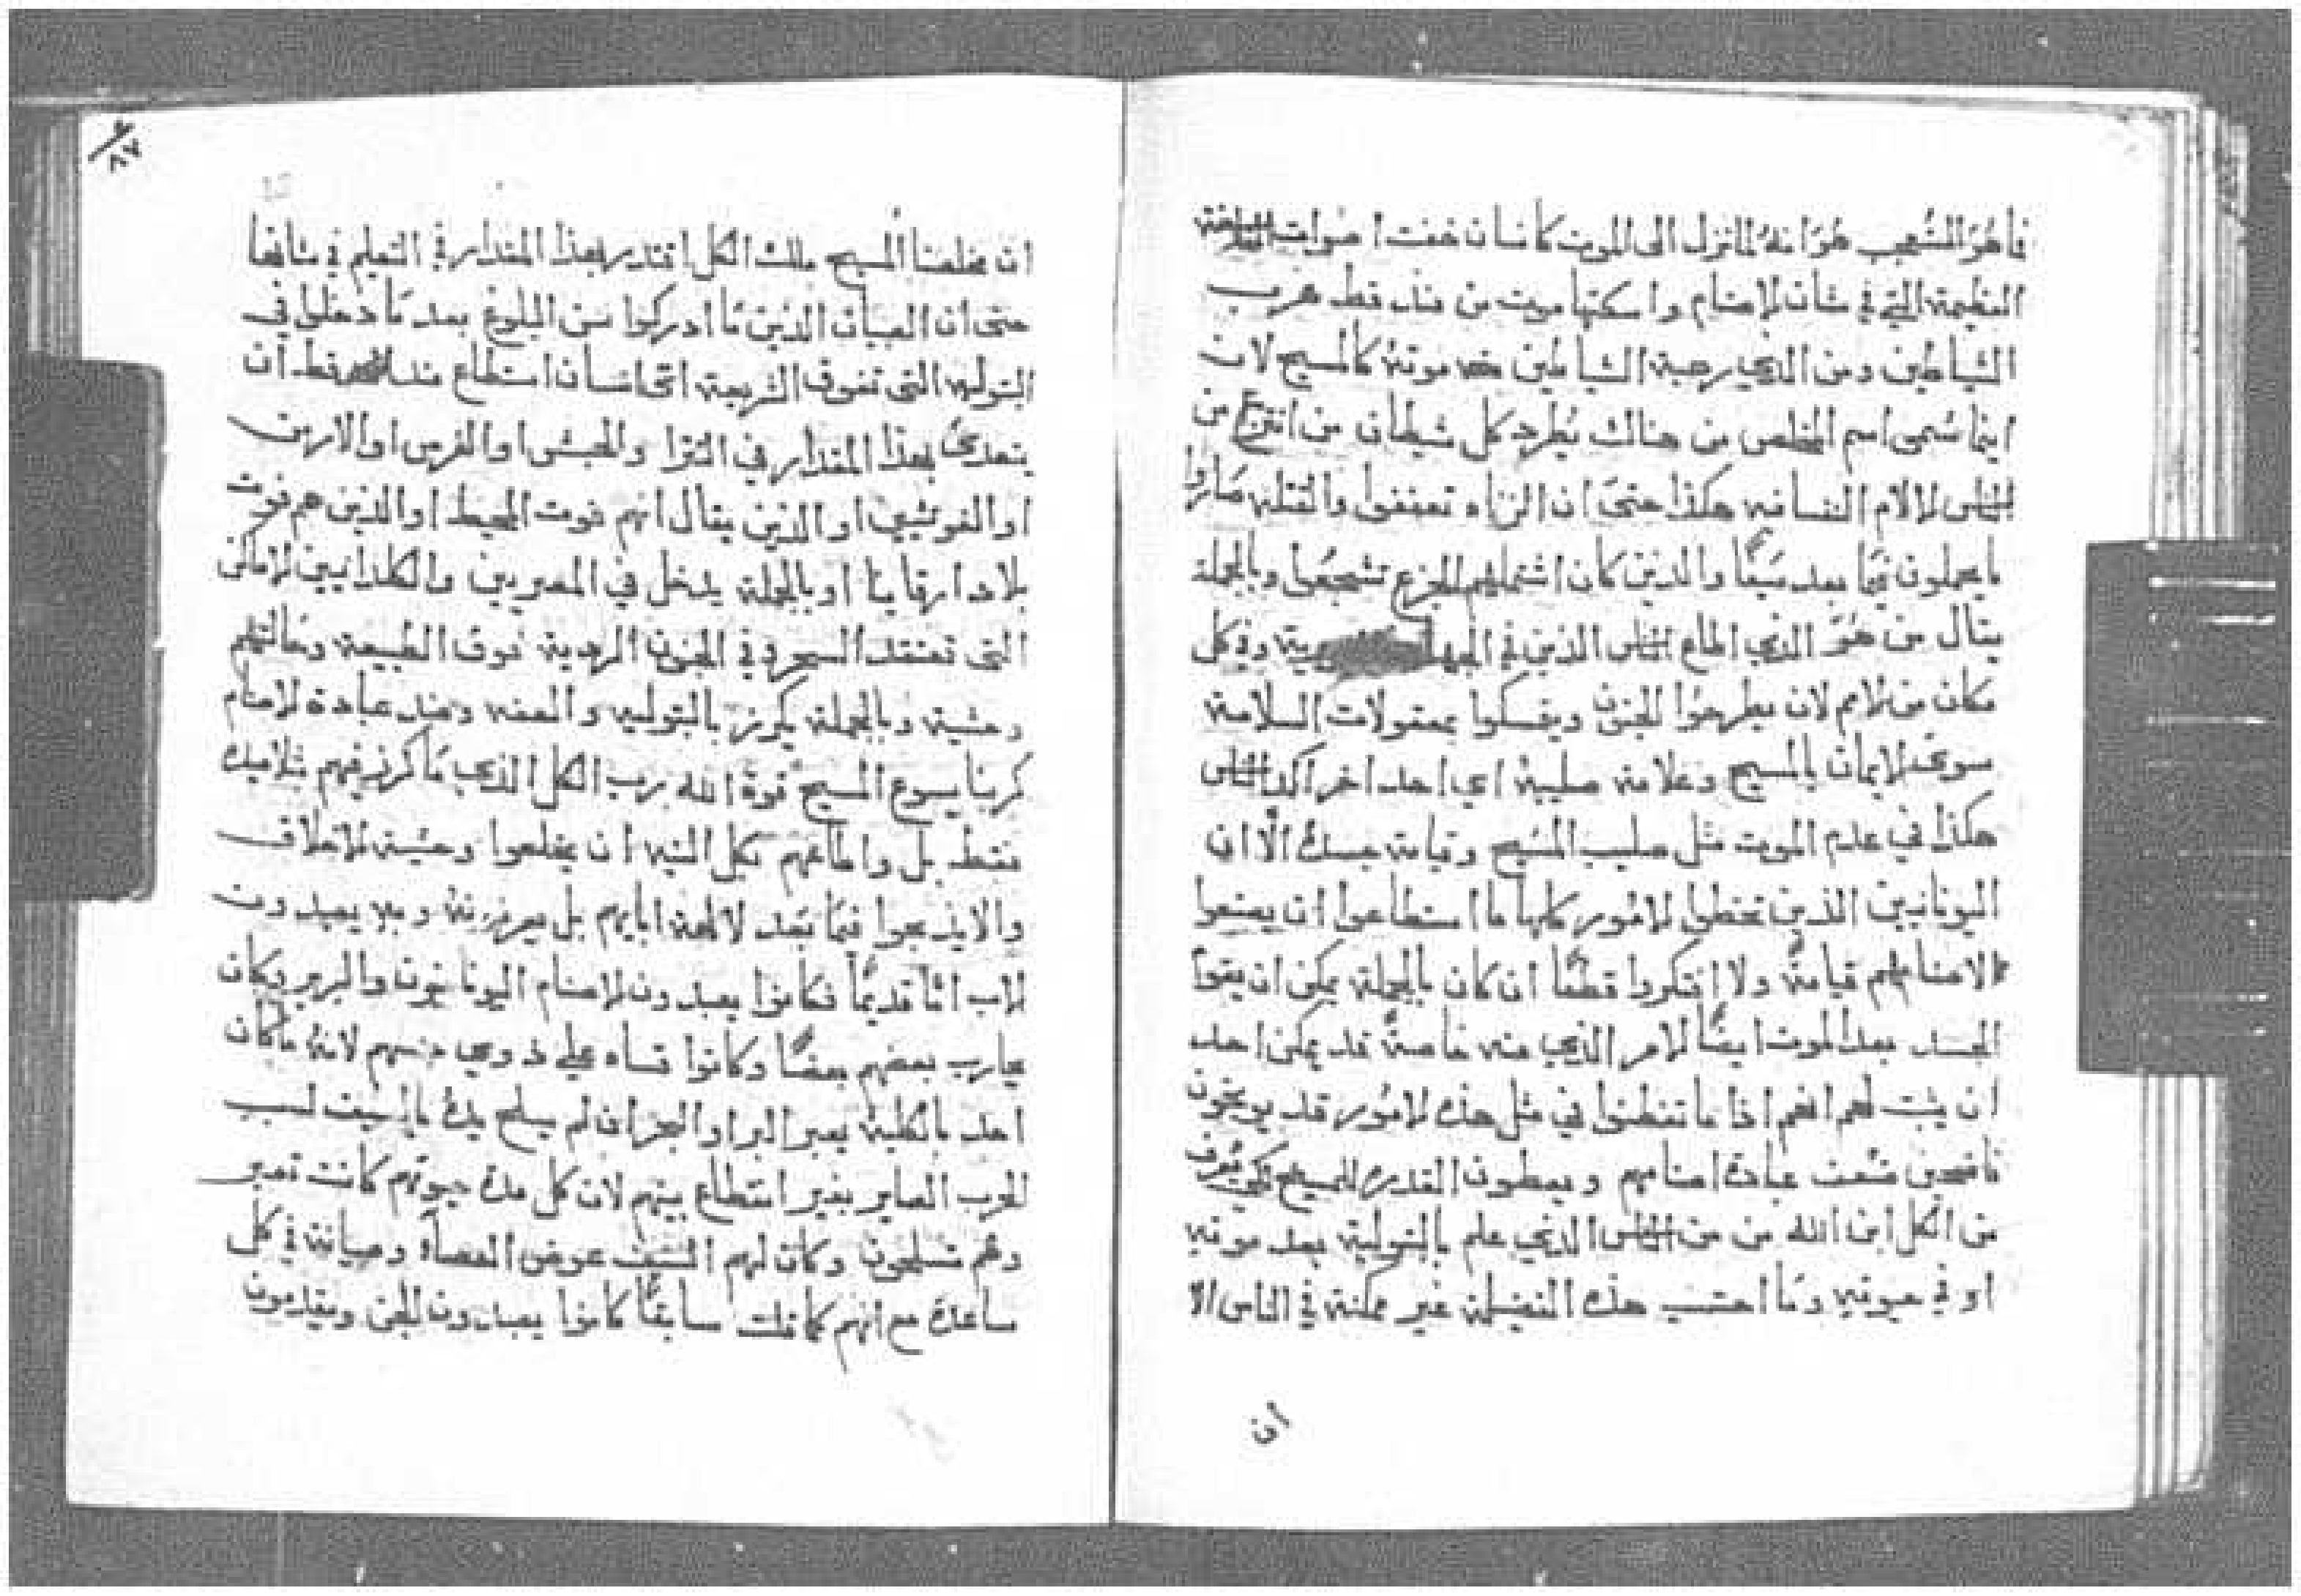 فما هُوَ المتُعجب هُوَ انهُ لما نزل الى الموت كانسان خفت اصوات
العظيمة التي في شان الاصنام واسكتها موت من منذ قط هرب
الشياطين ومن الذي رهبة الشياطين ضد موتهُ كالمسيح لان
اينما سُمى اسم المخلص من هنالك يُطرد كل شيطان من انتزع من
الناس الالام النفسانيه هكذا حتىَ ان الزناه تعففوا والقتله صَاروا
ما يحملون فيمَا بعد سَيفًا والذين كان اشتملهم الجزع تشجعُوا وبالجملة
يقال من هُوَ الذي اطاع الناس الذين في وفي كل
مكان من الامم لان يطرحُوا الجنون ويفسكوا بمعقولات السلامة
سوى الايمان بالمسيح وعلامة صليبهُ اي احد اخر اكد الناس
هكذا في عدم الموت مثل صليب المسُيح وقيامة جسدهُ الَّا ان
اليونانيين الذين تخطوا الامُور كلها ما استطاعوا ان يصنعوا
لاصنامهم قيامةً ولا افتكروا قطعًا ان كان بالجملة يمكن ان يقوا
الجسد بعد الموت ايضًا الامر الذي منه خاصةً قد يمكن احد
ان يثبت لهم انهم اذا ما تفطنوا في مثل هذه الامُور قد يوبخون
فاضحين ضُعف عبادة اصنامهم ويعطون القدرة للمسيح لكي يُعرف
من الكل ابن الله من من الناس الذي علم بالبتولية بعد موته
او في حيوته ومَا احتسب هذه الفضيلة غير ممكنة في الناس الا
ان
٨٧
ان مخلصنا المسيح ملك الكل اقتدر بهذا المقدار في التعليم في شانها
حتى ان الصبيان الذين مَا ادركوا سن البلوغ بعد مَا دخلوا في
البتوليه التي تفوق الشريعة اي انسان استطاع منذ قط ان
يتعدى بهذا المقدار في التترا والحبش او الفرس او الارمن
او الغوثثيين او الذين يقال انهم فوت المحيط او الذين هم فوت
بلاد ارقانيا او بالجملة يدخل في المصريين والكلدانيين الاماكن
التي تعتقد السحر وفي الجنون الردية فوق الطبيعة وحَالتهم
وحشية وبالجملة يكرز بالبتوليه والعفه وضد عبادة الاصنام
كربنا يسوع المسيح قوة الله رب الكل الذي مَا كرز فيهم بتلاميذه
فقط بل واطاعهم بكل النيه ان يخلعوا وحشية الاخلاق
والا يذبحوا فيمَا بَعد لالهة ابايهم بل يعرفونه وبه يعبدون
للاب امَّا قديمًا فكانوا يعبدون الاصنام اليونانيون والبربر وكان
يحارب بعضهم بعضًا وكانوا قساه على ذوي جنسهم لانهُ ماكان
احد بالكلية يعبر البر او البحر ان لم يسلح يدهُ بالسَيف لسبب
الحرب الصاير بغير انقطاع بينهم لان كل مدة حيوتهم كانت تصير
وهُم متسلحون وكان لهم السَيف عوض العصاة وصيانة في كل
ساعدة مع انهم كما قلت سابقًا كانوا يعبدون للجن ويقدمون